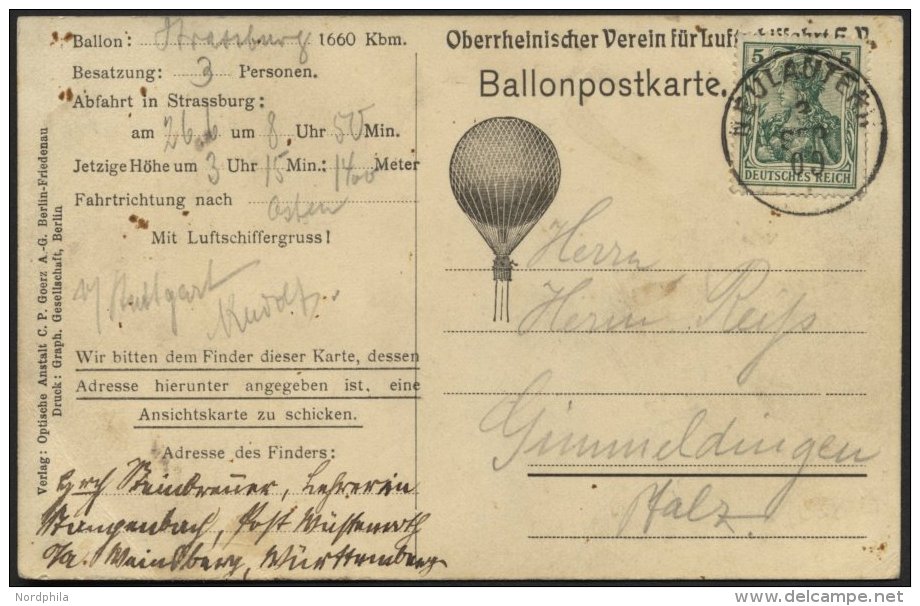 Ballon: Strassburg 1660 Kbm.
Besatzung: 3 Personen.
Abfahrt in Strassburg:
am 26. um 8 Uhr 50 Min.
Jetzige Höhe um 3 Uhr 15 Min.: 1400 Meter
Fahrtrichtung nach Osten
Mit Luftschiffergruss!
Stuttgart
Wir bitten dem Finder dieser Karte, dessen
Adresse hierunter angegeben ist, eine
Ansichtskarte zu schicken.
Adresse des Finders:
Steinbrenner, Lehrerin
Stangenbach, Post Wüstenroth
O/A. Weinsberg, Württemberg
Verlag: Optische Anstalt C. P. Goerz A.-G. Berlin-Friedenau
Druck: Graph. Gesellschaft, Berlin
Oberrheinischer Verein für Luftschiffahrt E.V.
Ballonpostkarte.
5 5
DEUTSCHES REICH
NEULAUTERN
3
SEP
09
Herrn
Herm Reiss
Gimmeldingen
Pfalz
Nordphila
delcampe.net